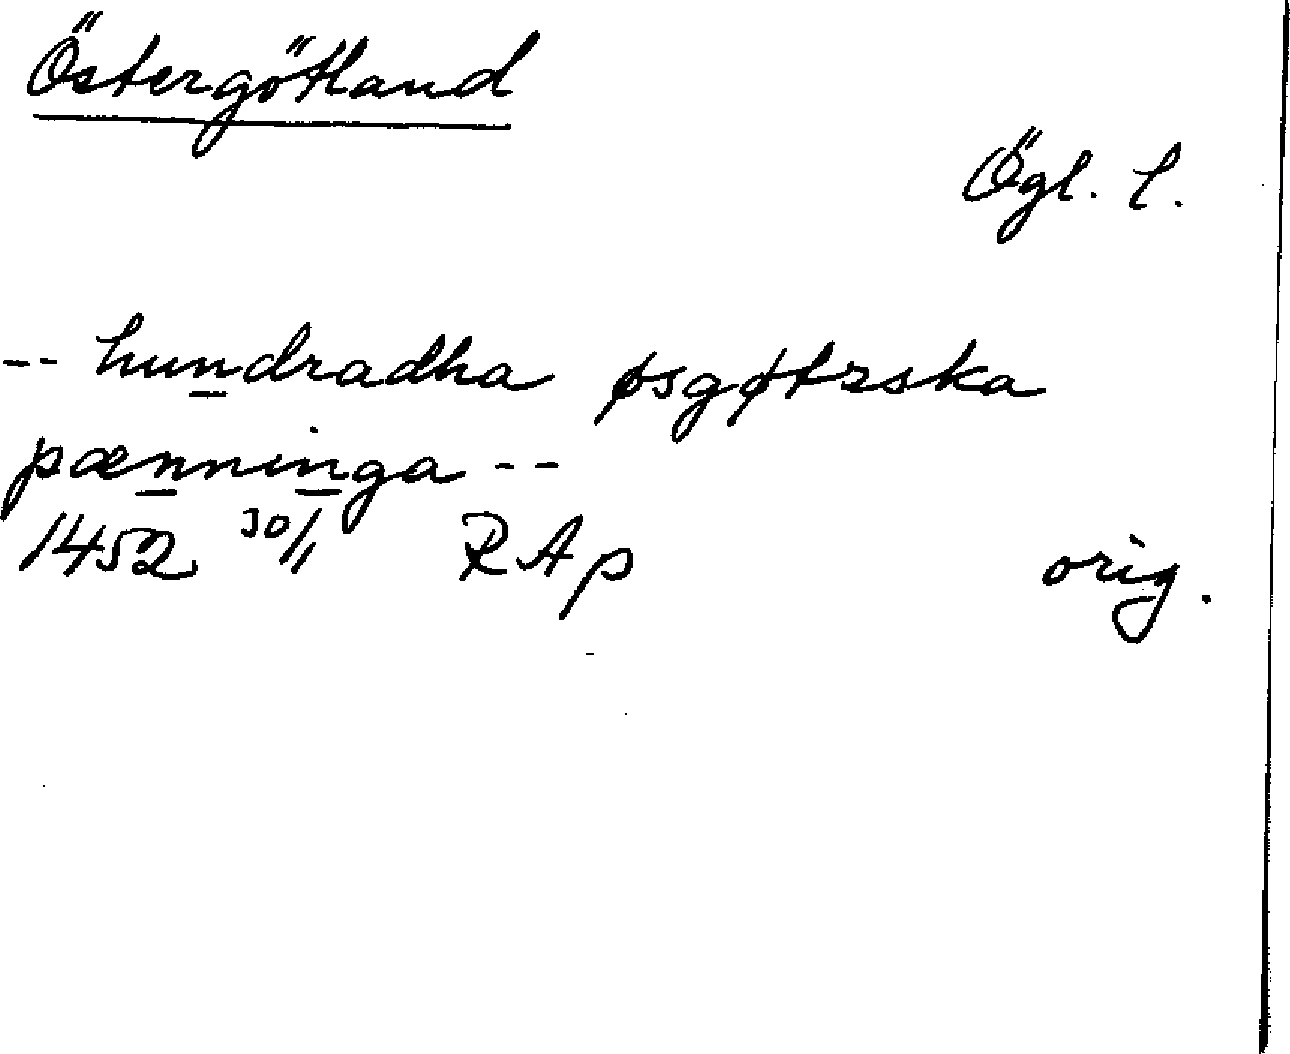 Östergötland
Ögl. l.
-- hundradha øsgøtzska
pænninga --
1452 30/11 RAp orig.